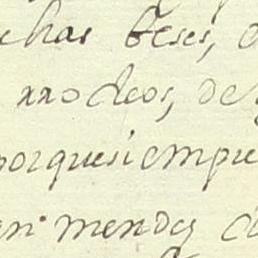 chas beses, d
xxodeos, de
porquesiempre
en mendez d